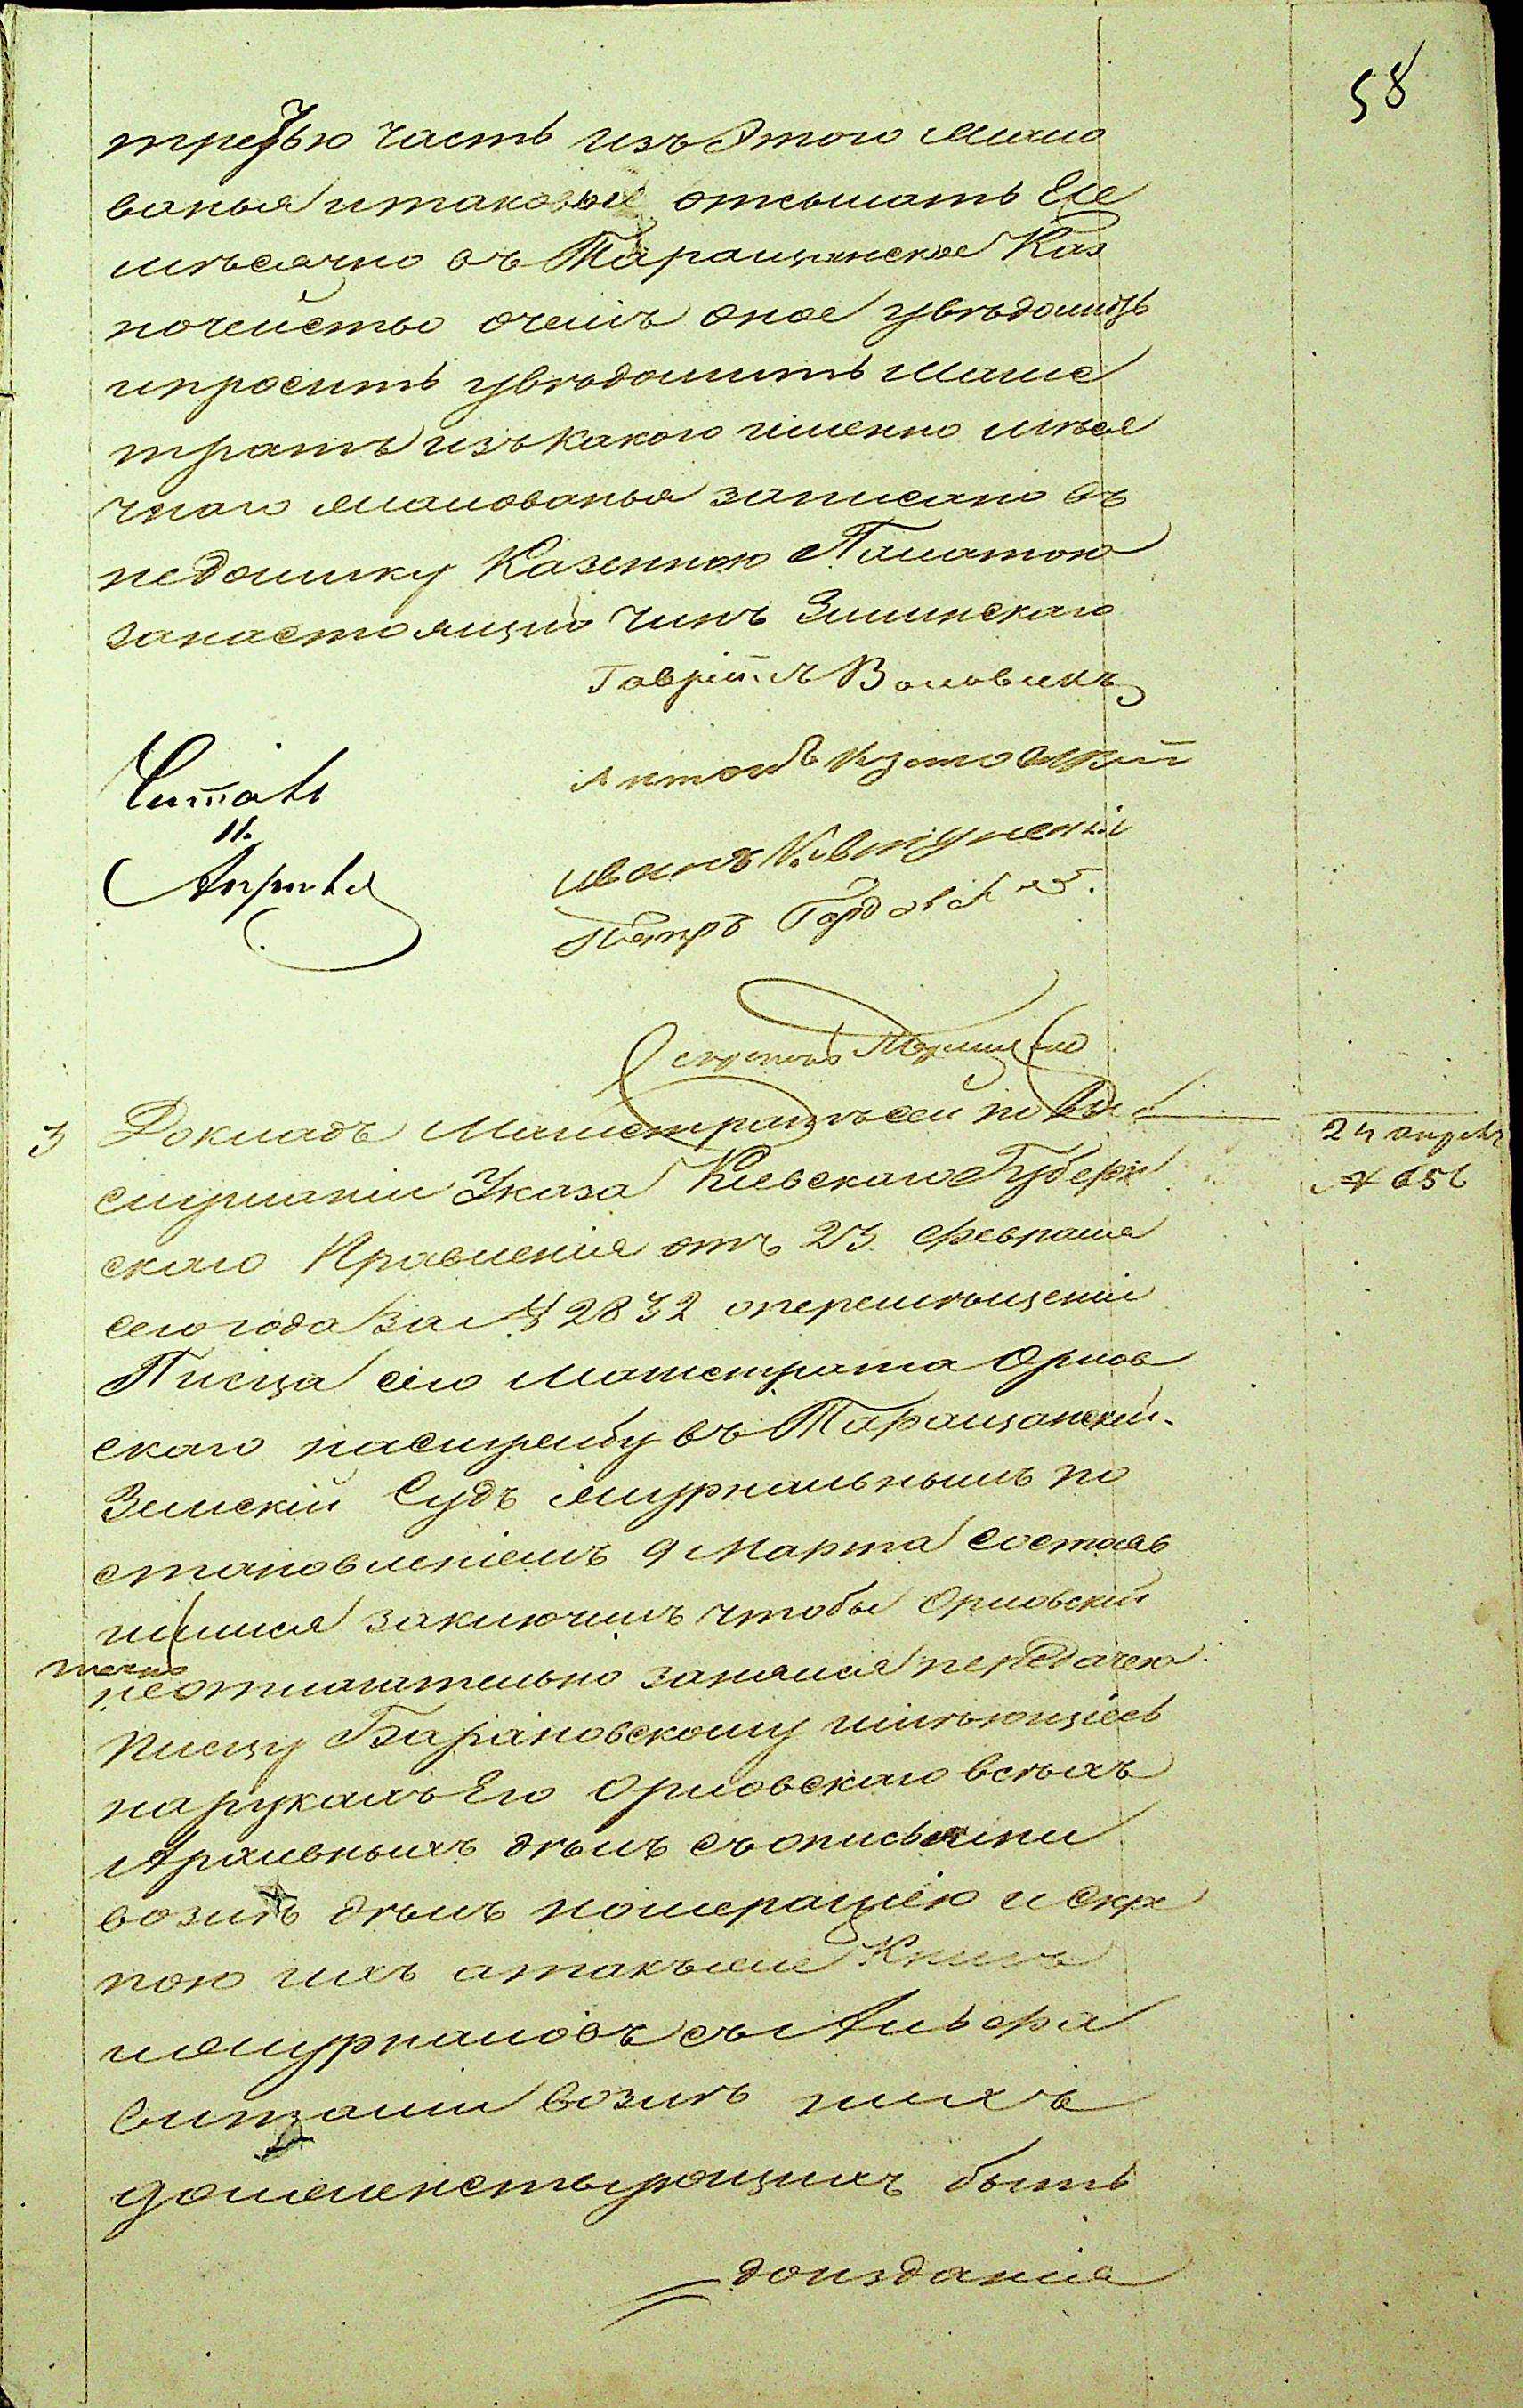 58
третью часть изъ Этого жало
ванья и таковые отсылать Еже
мѣсячно въ Таращанское Каз
начейство очемъ оное увѣдомить
ипросить увѣдомить Магис
тратъ изъ какого именно мѣся
чнаго жалованья записано въ
недоимку Казенною Палатою
занастоящій Чинъ Зилинскаго
Гавріилъ Воловикъ
Антонъ
Читалъ
11.
Апрѣля
Иванъ
Петръ
3 Докладъ Магистратъ сей по Вы
24 апрѣля
№ 656
слушаніи Указа Кіевскаго Губерн
скаго Правленія отъ 23 Февраля
сего года за № 2832 оперемѣщеніи
Писца сего Магистрата Орлов
скаго наслужбу въ Таращанскій
Земскій Судъ журнальнымъ по
становленіемъ 9 Марта состояв
шимся заключилъ чтобы Орловскій
точно
неотлагательно занялся передачею
писцу Барановскому имѣющіесь
нарукахъ Его Орловскаго всѣхъ
Архивныхъ дѣлъ съ описьями
возимѣ дѣлъ номераціею и скрѣ
пою ихъ атакъже Книгъ
ижурналовъ съ
возимѣ нихъ
долженствующихъ быть
доизданія